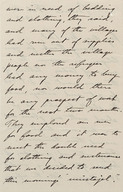 were in need of bedding
and clothing, they said,
and many of the villages
had run out of supplies
and neither the village
people nor the refugees
had any money to buy
food, no would there
be any prospect of work
for the next three months.
in
for food and it was to
meet the double need
for clothing and
that we decided to send
this morning's